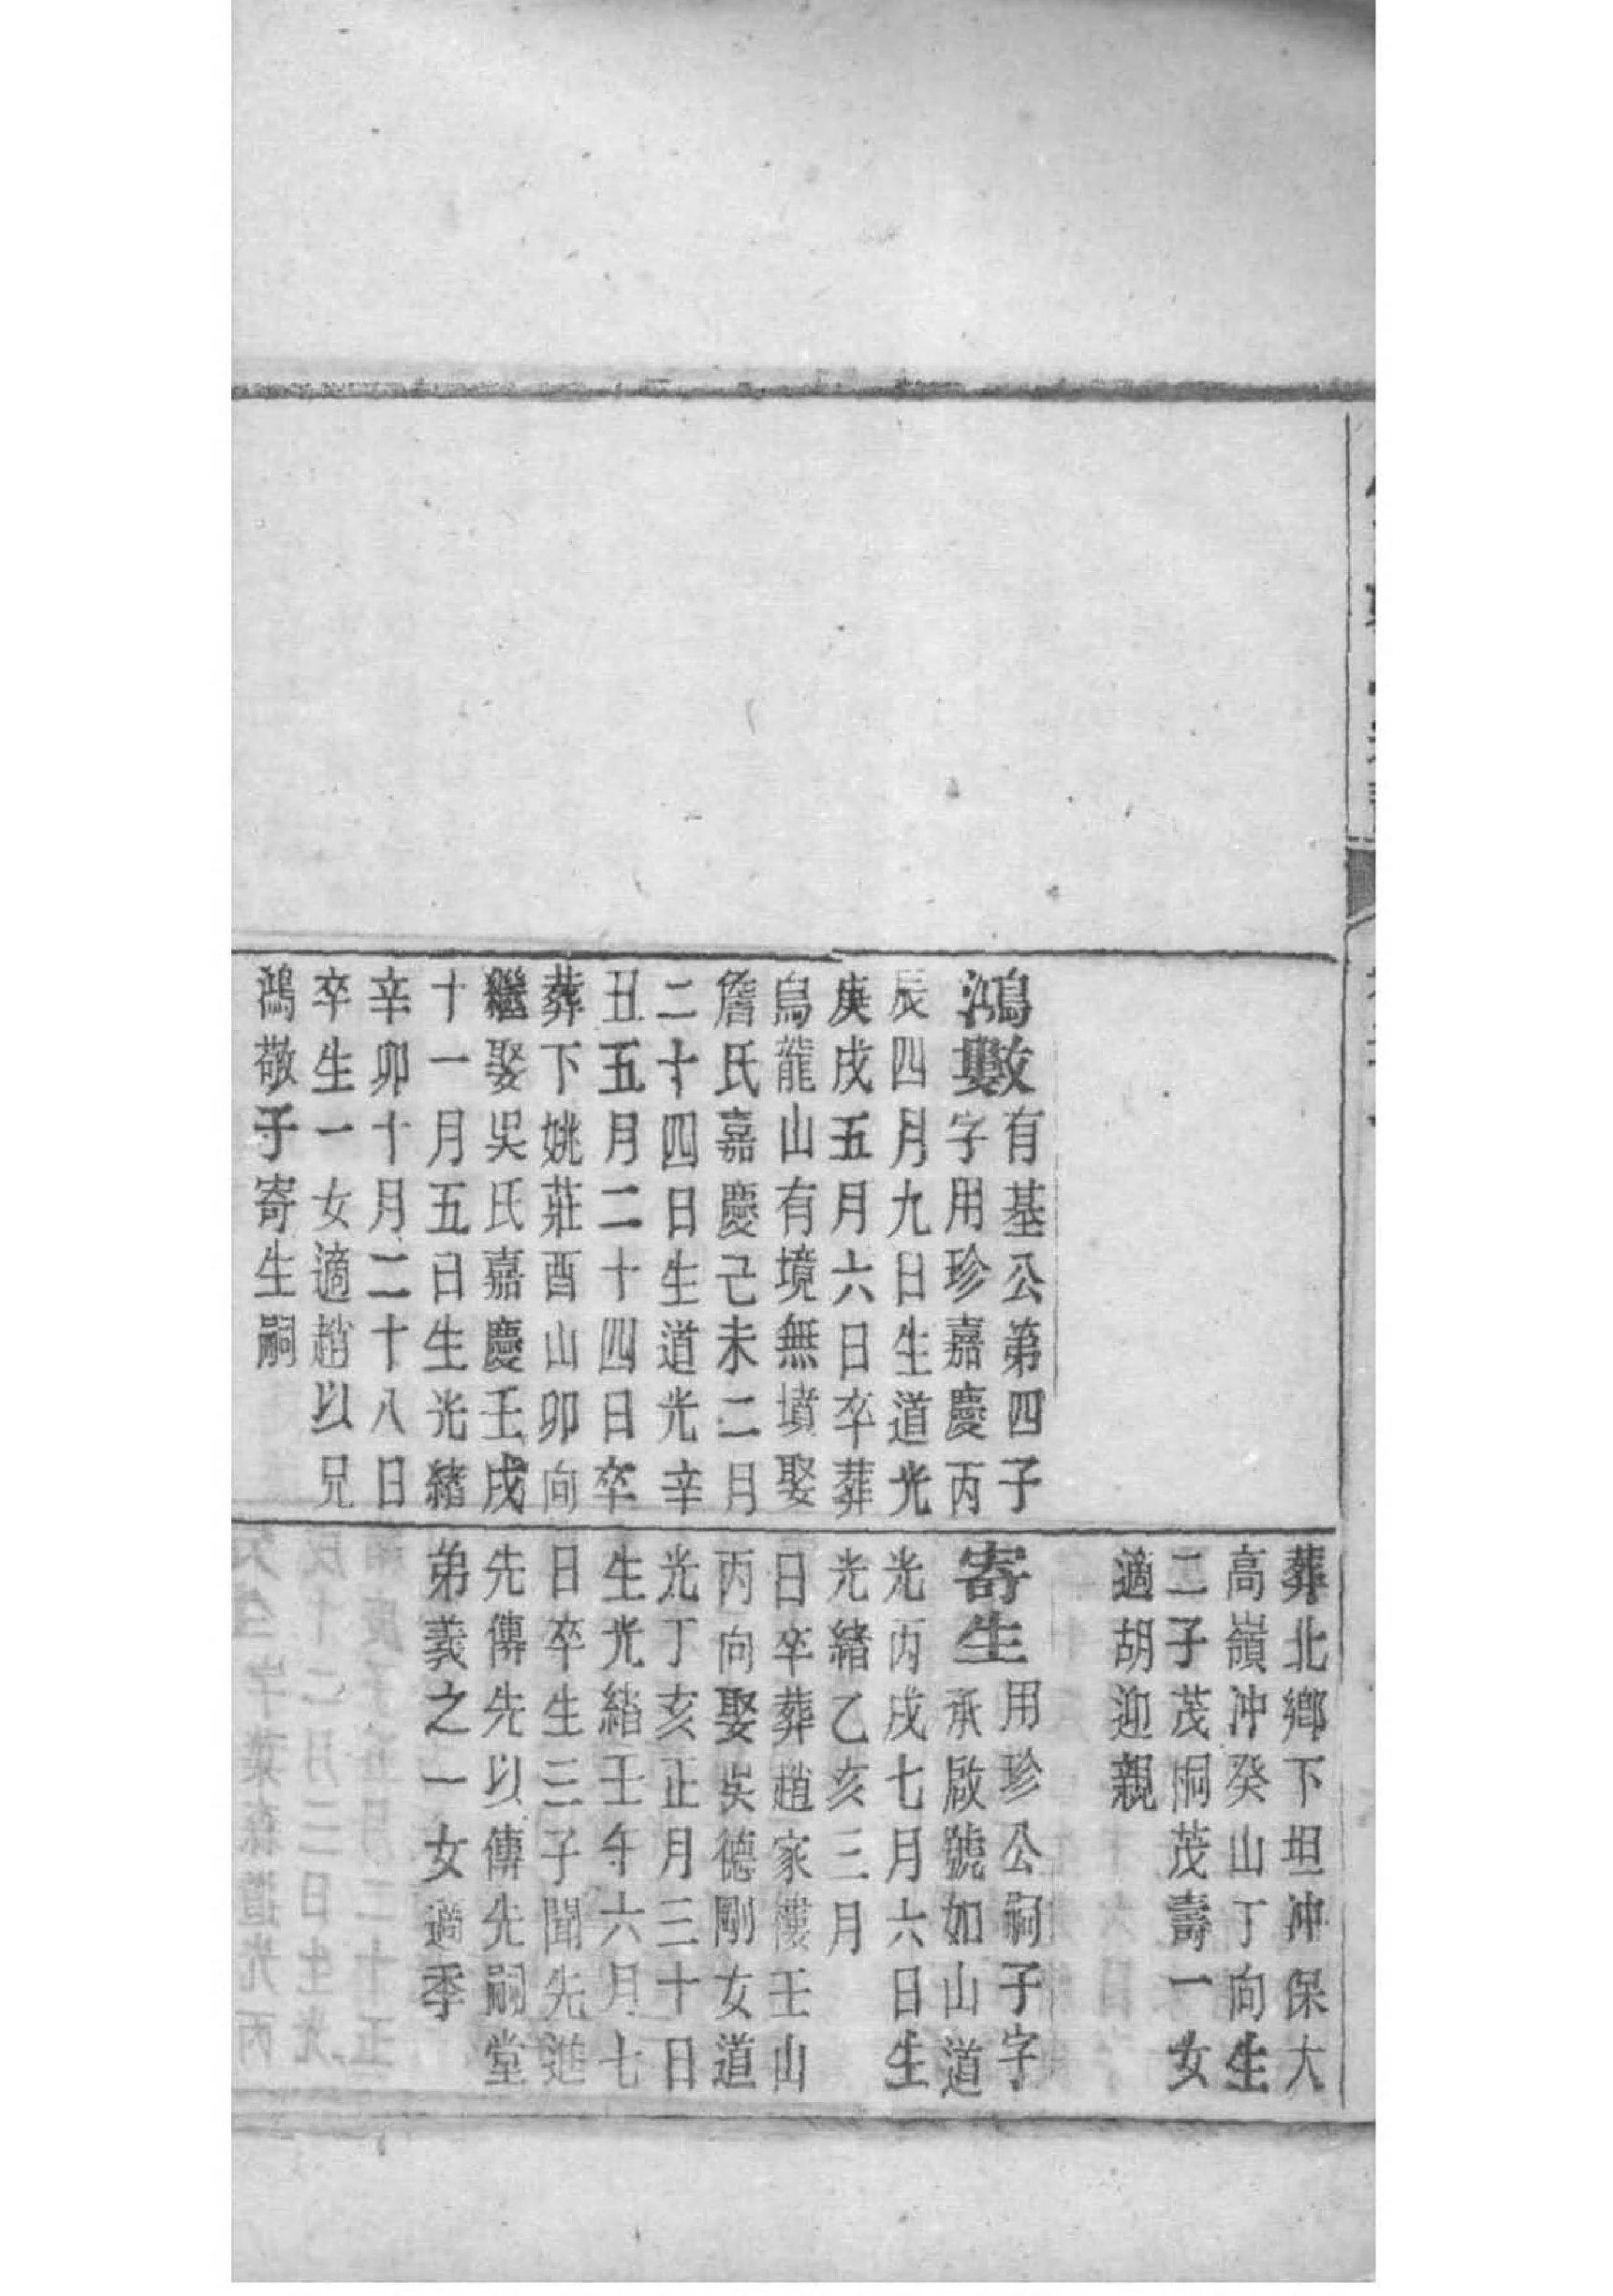 鴻數有基公第四子
字用珍嘉慶丙
辰四月九日生道光
庚戌五月六日卒葬
烏龍山有境無墳娶
詹氏嘉慶己未二月
二十四日生道光辛
丑五月二十四日卒
葬下姚莊酉山卯向
繼娶吳氏嘉慶壬戌
十一月五日生光緒
辛卯十月二十八日
卒生一女適趙以兄
鴻敬子寄生嗣
葬北鄉下坦冲保大
高嶺冲癸山丁向生
二子茂桐茂壽一女
適胡迎親
寄生用珍公嗣子字
承啟號如山道
光丙戌七月六日生
光緒乙亥三月
日卒葬趙家㙩壬山
丙向娶吳德剛女道
光丁亥正月三十日
生光緒壬午六月七
日卒生三子聞先進
先傳先以傳先嗣堂
弟義之一女適季